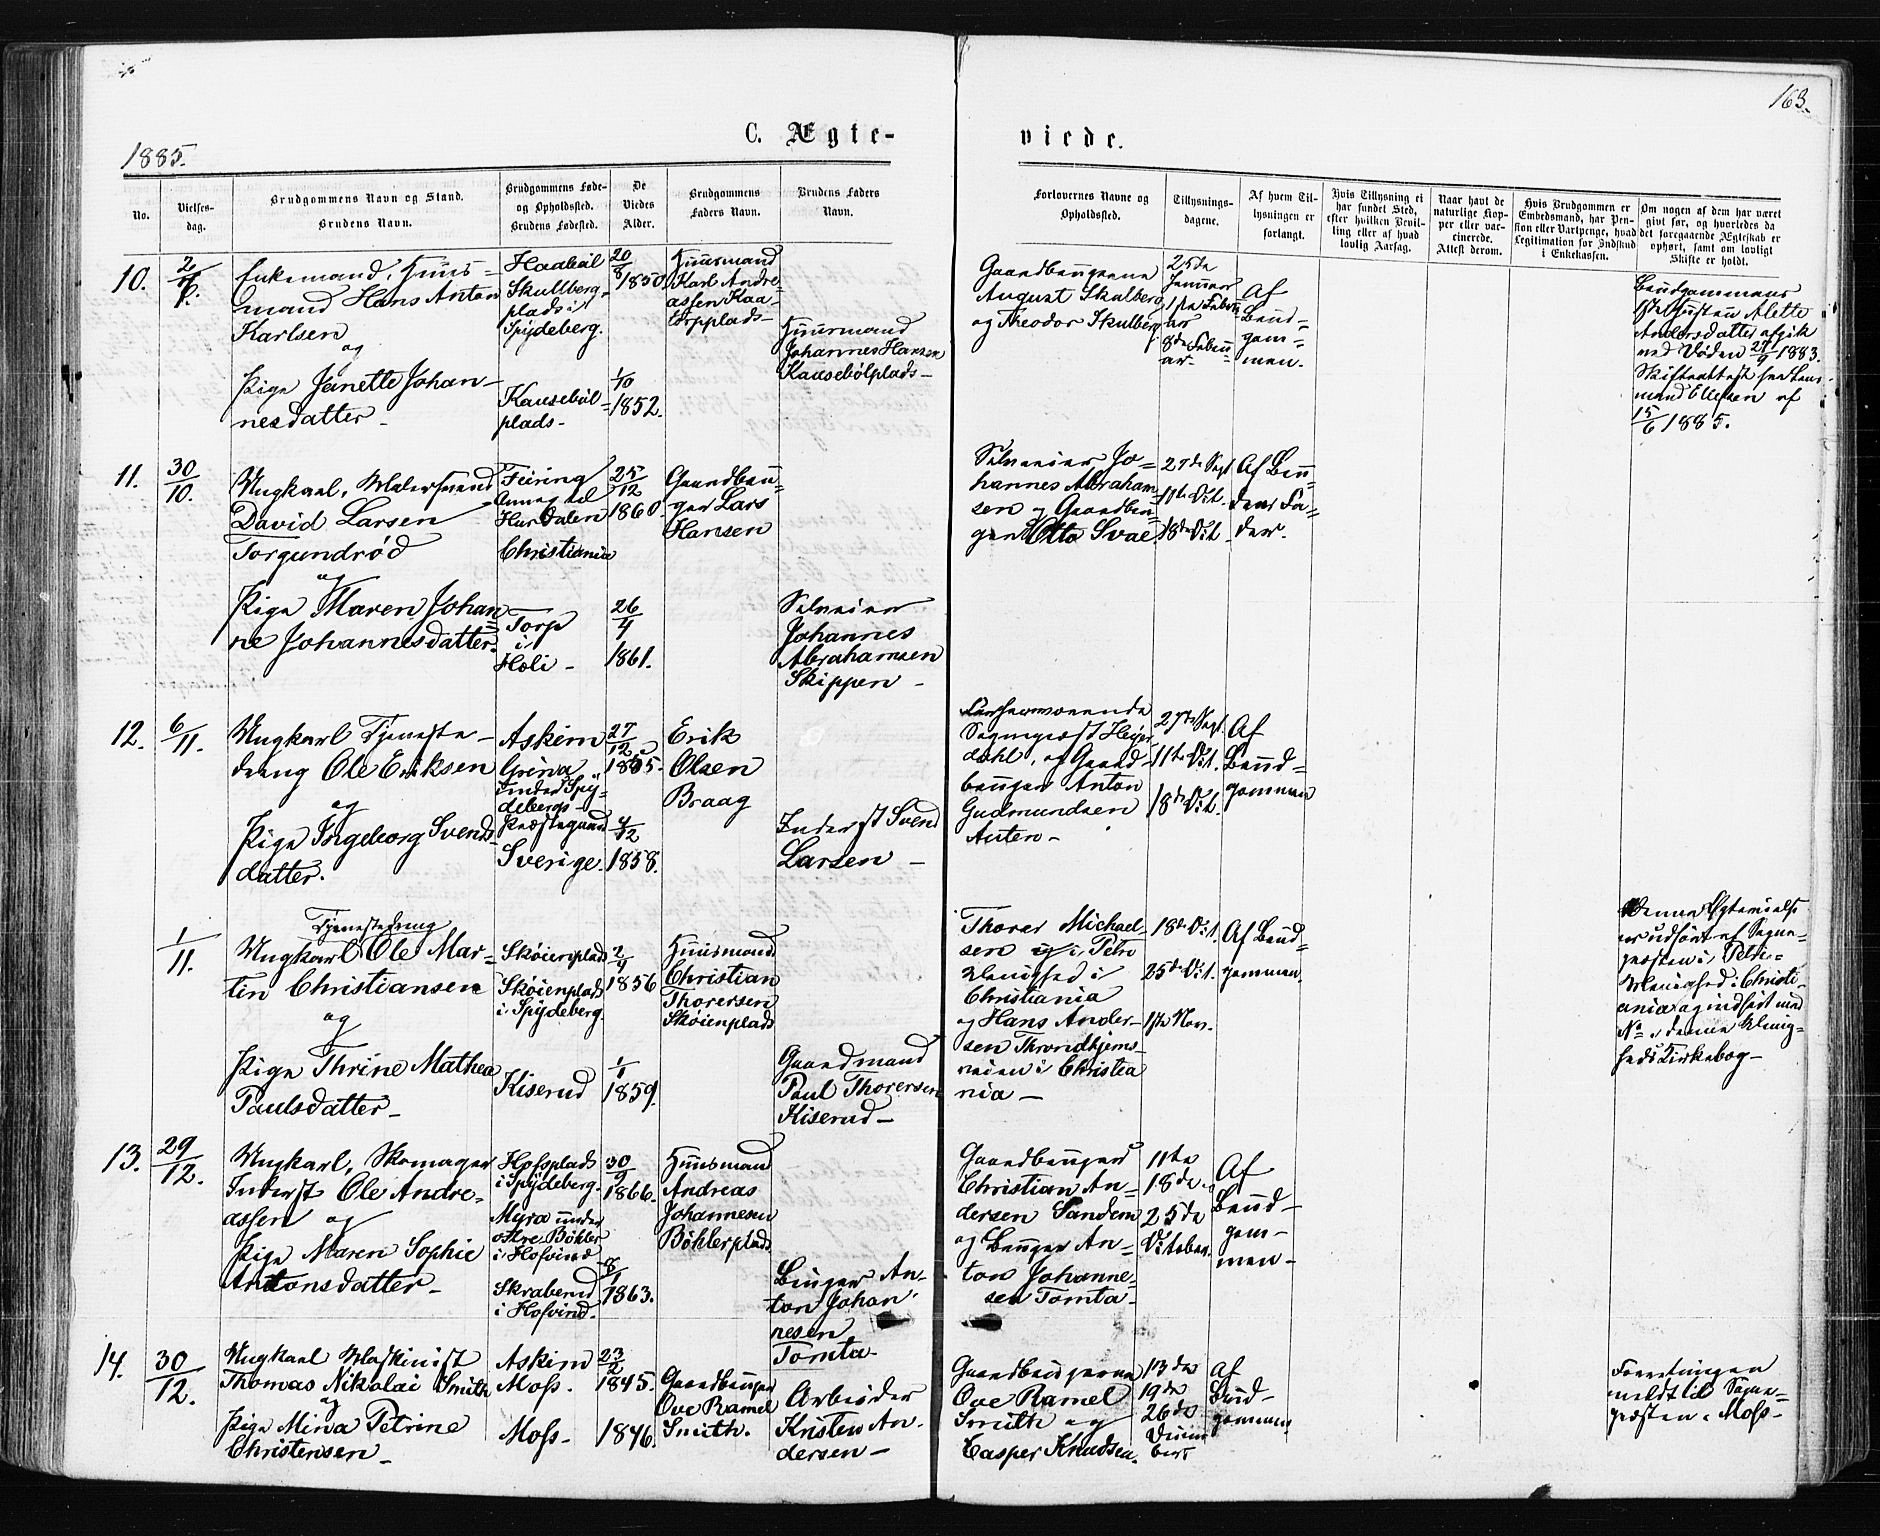 163.
C. Ægte-
viede.
1885.
No.
Vielses-
dag.
Brudgommens Navn og Stand.
Brudens Navn.
Brudgommens Føde-
og Opholdssted.
Brudens Fødested.
De
Viedes
Alder.
Brudgommens
Faders Navn.
Brudens Faders
Navn.
Forlovernes Navne og
Opholdssted.
Tillysnings-
dagene.
Af hvem Til-
lysningen er
forlangt.
Hvis Tillysning ei
har fundet Sted,
efter hvilken Bevil-
ling eller af hvad
lovlig Aarsag.
Naar havt de
naturlige Kop-
per eller vac-
cinerede.
Attest derom.
Hvis Brudgommen er
Embedsmand, har Pen-
sion eller Vartpenge, hvad
Legitimation for Indskud
i Enkekassen.
Om nogen af dem har været
gift før, og hvorledes da
det foregaaende Ægteskab er
ophørt, samt om lovligt
Skifte er holdt.
10.
Enkemand, Huus-
mand Hans Anton
Karlsen
og
Pige Janette Johan-
nesdatter -
Skulberg-
plads i
Spydeberg.
Kausebøl-
plads -
20/8 1850
1/10
1852.
Huusmand
Karl Andre-
assen Kaa-
torpplads -
Huusmand
Johannes Hansen
Kausebølplads -
Gaardbrugerne
August Skulberg
og Theodor Skulberg
25de
Januar
1ste Febru
ar
8de Febru
ar -
Af
Brud-
gom-
men.
Brudgommens
Hustru Alette
Andersdatter afgik
ved Døden 27/9 1883.
Skifteattest fra Lens-
mand Ellefsen af
15/6 1885.
11.
30/10.
Ungkarl, Malersvend
David Larsen
Torgundrød
og
Pige Maren Johan
ne Johannesdatter.
Feiring
Annex til
Hurdalen
Christiania
Torp
i
Holi -
25/12
1860.
26/4
1861.
Gaardbru-
ger Lars
Hansen
Selveier
Johannes
Abrahamsen
Skippen -
Selveier Jo-
hannes Abraham-
sen og Gaardbru-
ger Otto Svae
27de Sept
11te Oct.
18de Oct.
Af Bru-
dens Fa-
der.
12.
6/11.
Ungkarl Tjeneste-
dreng Ole Eriksen
og
Pige Ingeborg Svends-
datter.
Askim
Grina
under Spy-
debergs
Præstegaard
Sverige.
27/12
4/12
1858.
Erik
Olsen
Braag
Inderst Svend
Larsen -
Forhenværende
Sogneprest Heyer-
dahl, og Gaard-
bruger Anton
Gudmundsen
Anten -
27de Sept.
11te Oct.
18de Oct.
Af
Brud-
gommen
1/11.
Tjenestedreng
Ungkarl Ole Mar-
tin Christiansen
og
Pige Thrine Mathea
Paulsdatter -
Skøienplads
Skøienplads
i Spydeberg.
Kiserud
2/4
1856
1/1
1859.
Huusmand
Christian
Thorersen
Skøienplads
Gaardmand
Paul Thorersen
Kiserud -
Thorer Michael-
sen i Petri
Menighed i
Christiania
og Hans Ander-
sen Throndhjems-
veien i Christia
nia -
18de Oct.
25de Oct.
1ste Nov.
Af Brud-
gommen.
Denne Ægtevielse
er udført af Sogne-
præsten i Petri-
Menighed i Christi-
ania og indført med
No i denne Menig-
heds Kirkebog -
13.
29/12.
Ungkarl, Skomager
Inderst Ole Andre-
assen og
Pige Maren Sophie
Antonsdatter -
Hofsplads
i Spydeberg.
Myra under
østre Bøhler
i Hofvind
Skraberud
i Hofvind.
30/9
1866.
8/1
1863.
Huusmand
Andreas
Johannesen
Bøhlerplads
Bruger An-
ton Johan-
nesen
Tomta -
Gaardbruger
Christian An-
dersen Sandem
og Bruger An-
ton Johanne-
sen Tomta -
11te
18de
25de
October.
Af
Brud-
gom-
men -
14.
30/12.
Ungkarl Maskinist
Thomas Nikolai Smith
og
Pige Mina Petrine
Christensen -
Askim
Moss.
Moss -
23/2
1845.
1846.
Gaardbruger
Ove Ramel
Smith.
Arbeider
Kristen An-
dersen -
Gaardbrugerne
Ove Ramel
Smith og
Casper Knudsen.
13de
19de
26de
Af
Brud-
gommen
Forretningen
meldt til Sogne-
præsten i Moss -